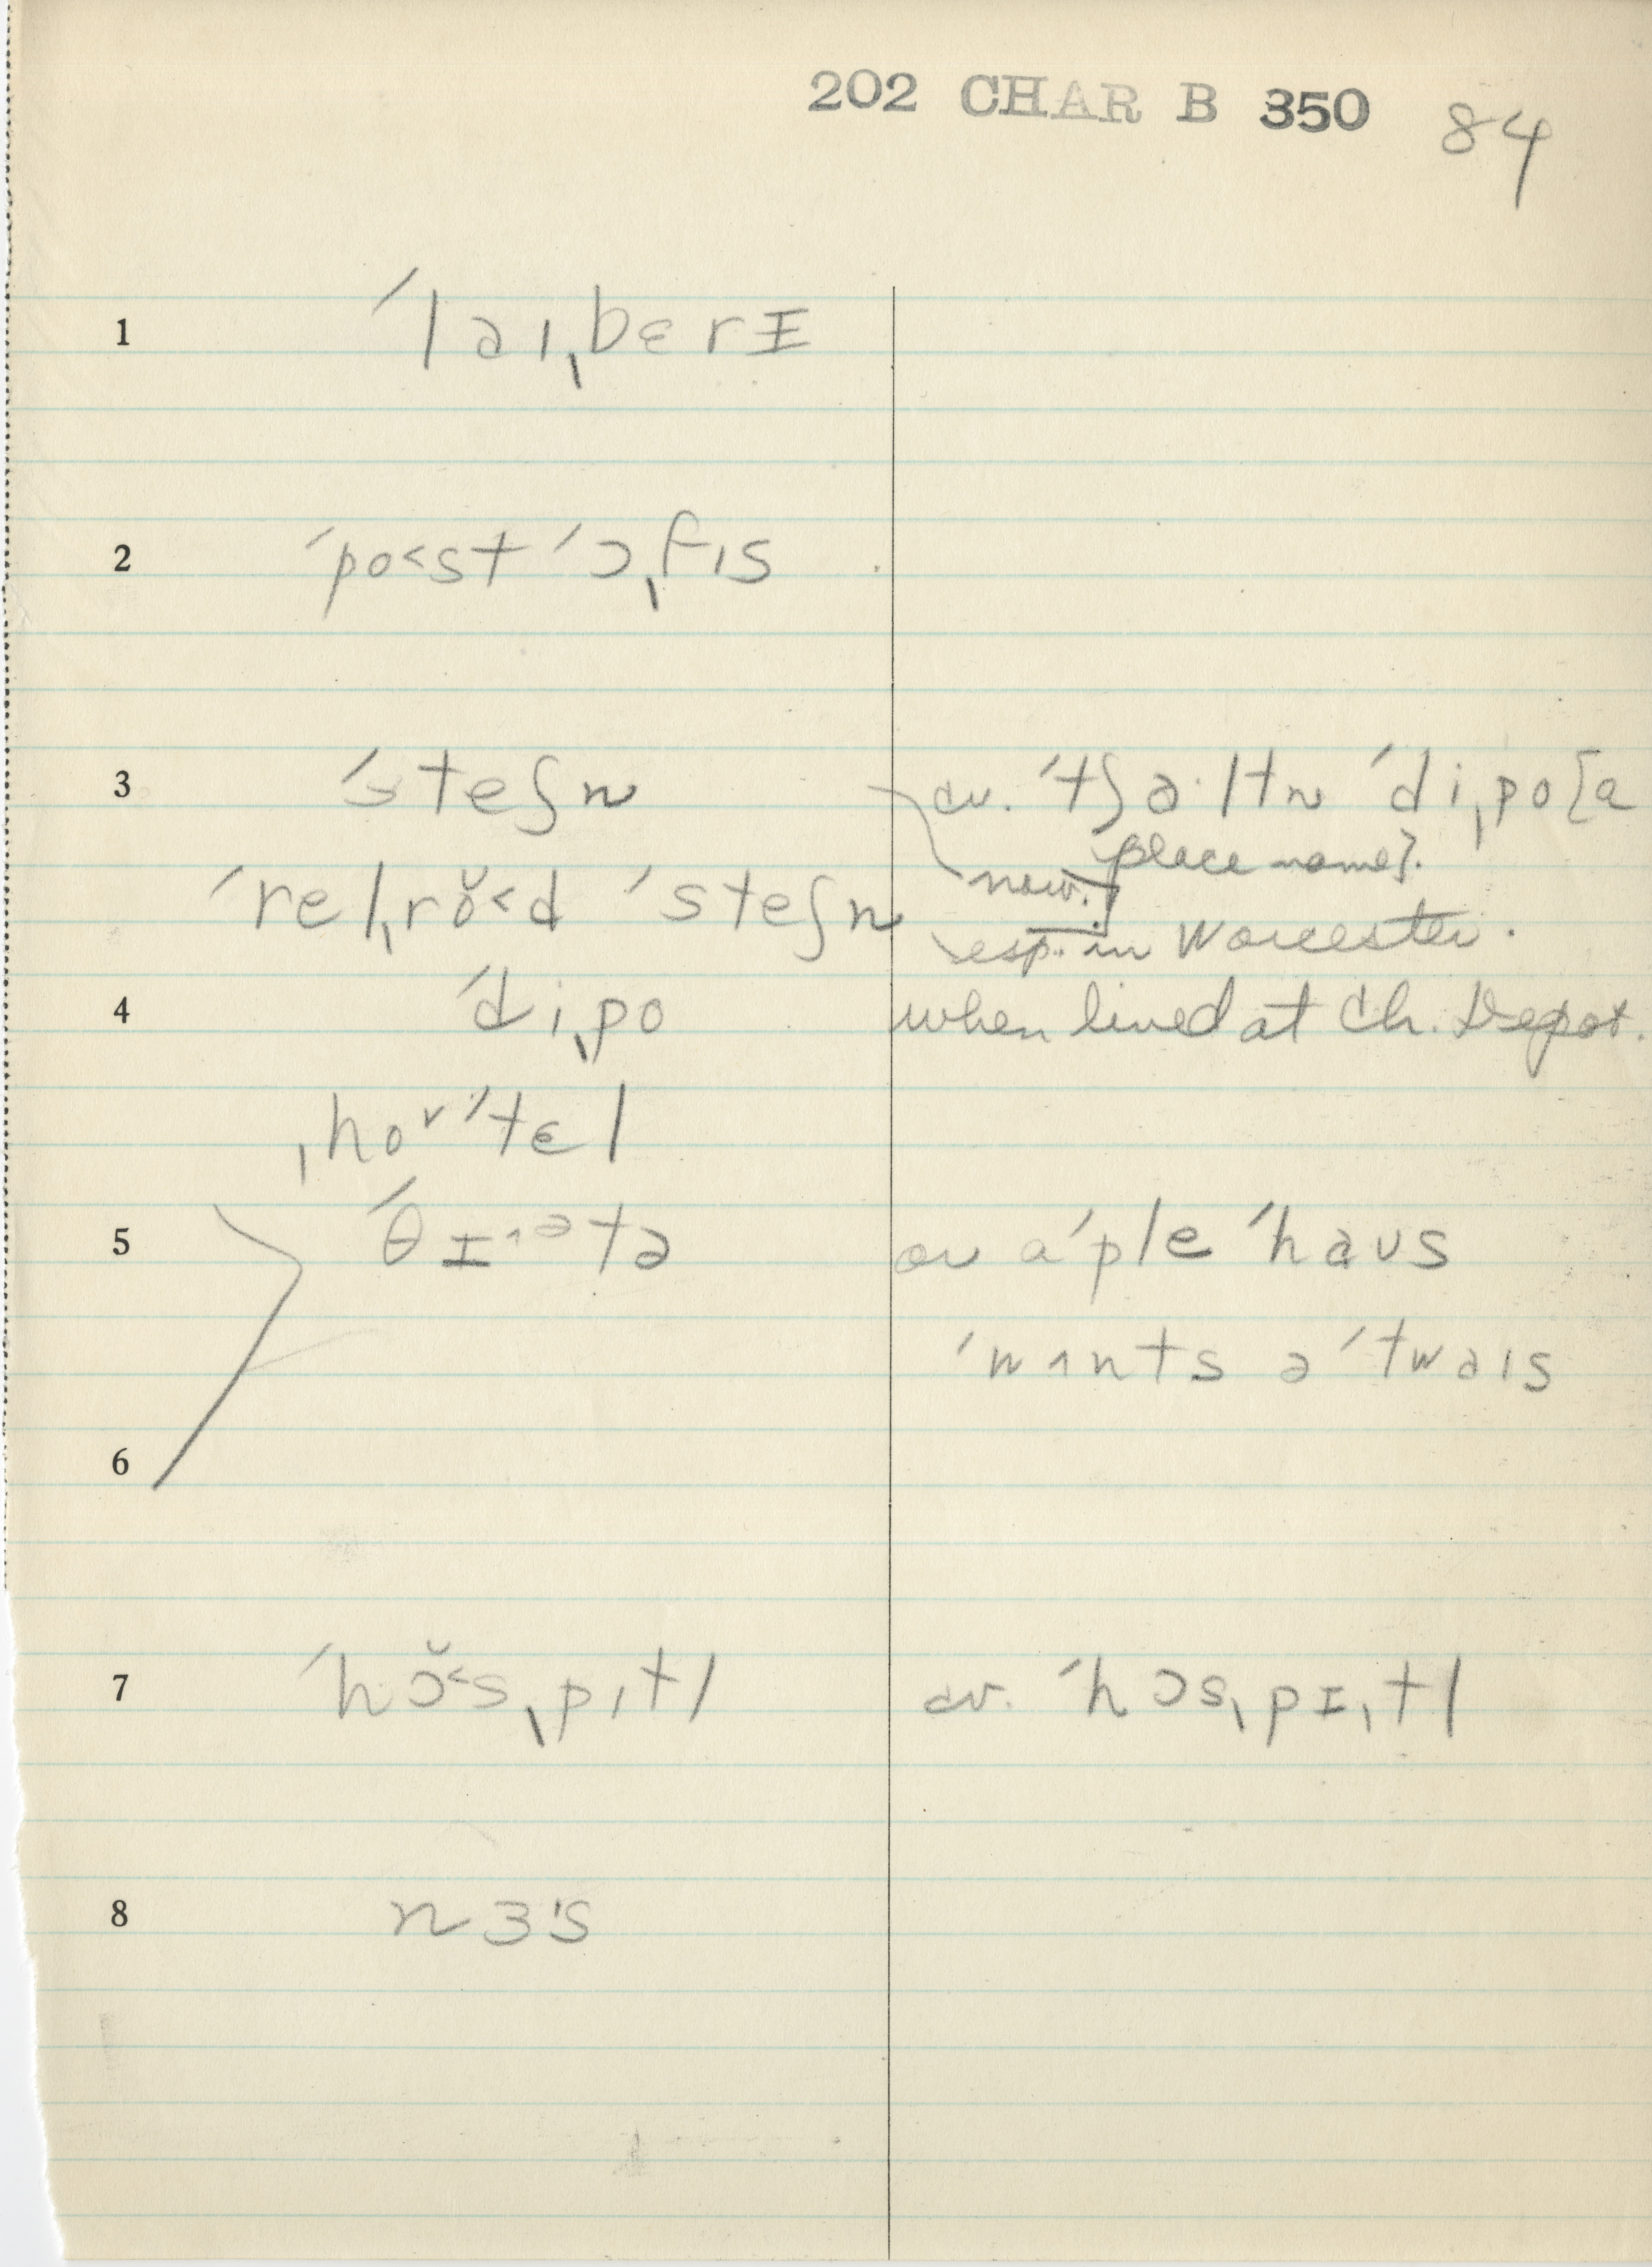 202 CHAR B 350 84
1 ˈlaɪˌbɛrɪ
2 ˈpo˂st ˈɔˌfɪs
3 ˈsteʃn cv. ˈtʃɑ·ltn ˈdiˌpo [a
place name].
ˈrelˌrŏ˂d ˈsteʃn now.
esp. in Worcester.
4 ˈdiˌpo when lived at Ch. Depot.
ˌho˅ˈtɛl
5 ˈθɪ˄ətə cv aˈple ˈhaʊs
ˈwʌnts əˈtwaɪs
6
7 ˈhɔ̆˂sˌpɪtl cv. ˈhɔsˌpɪˌtl
8 nɜˈs